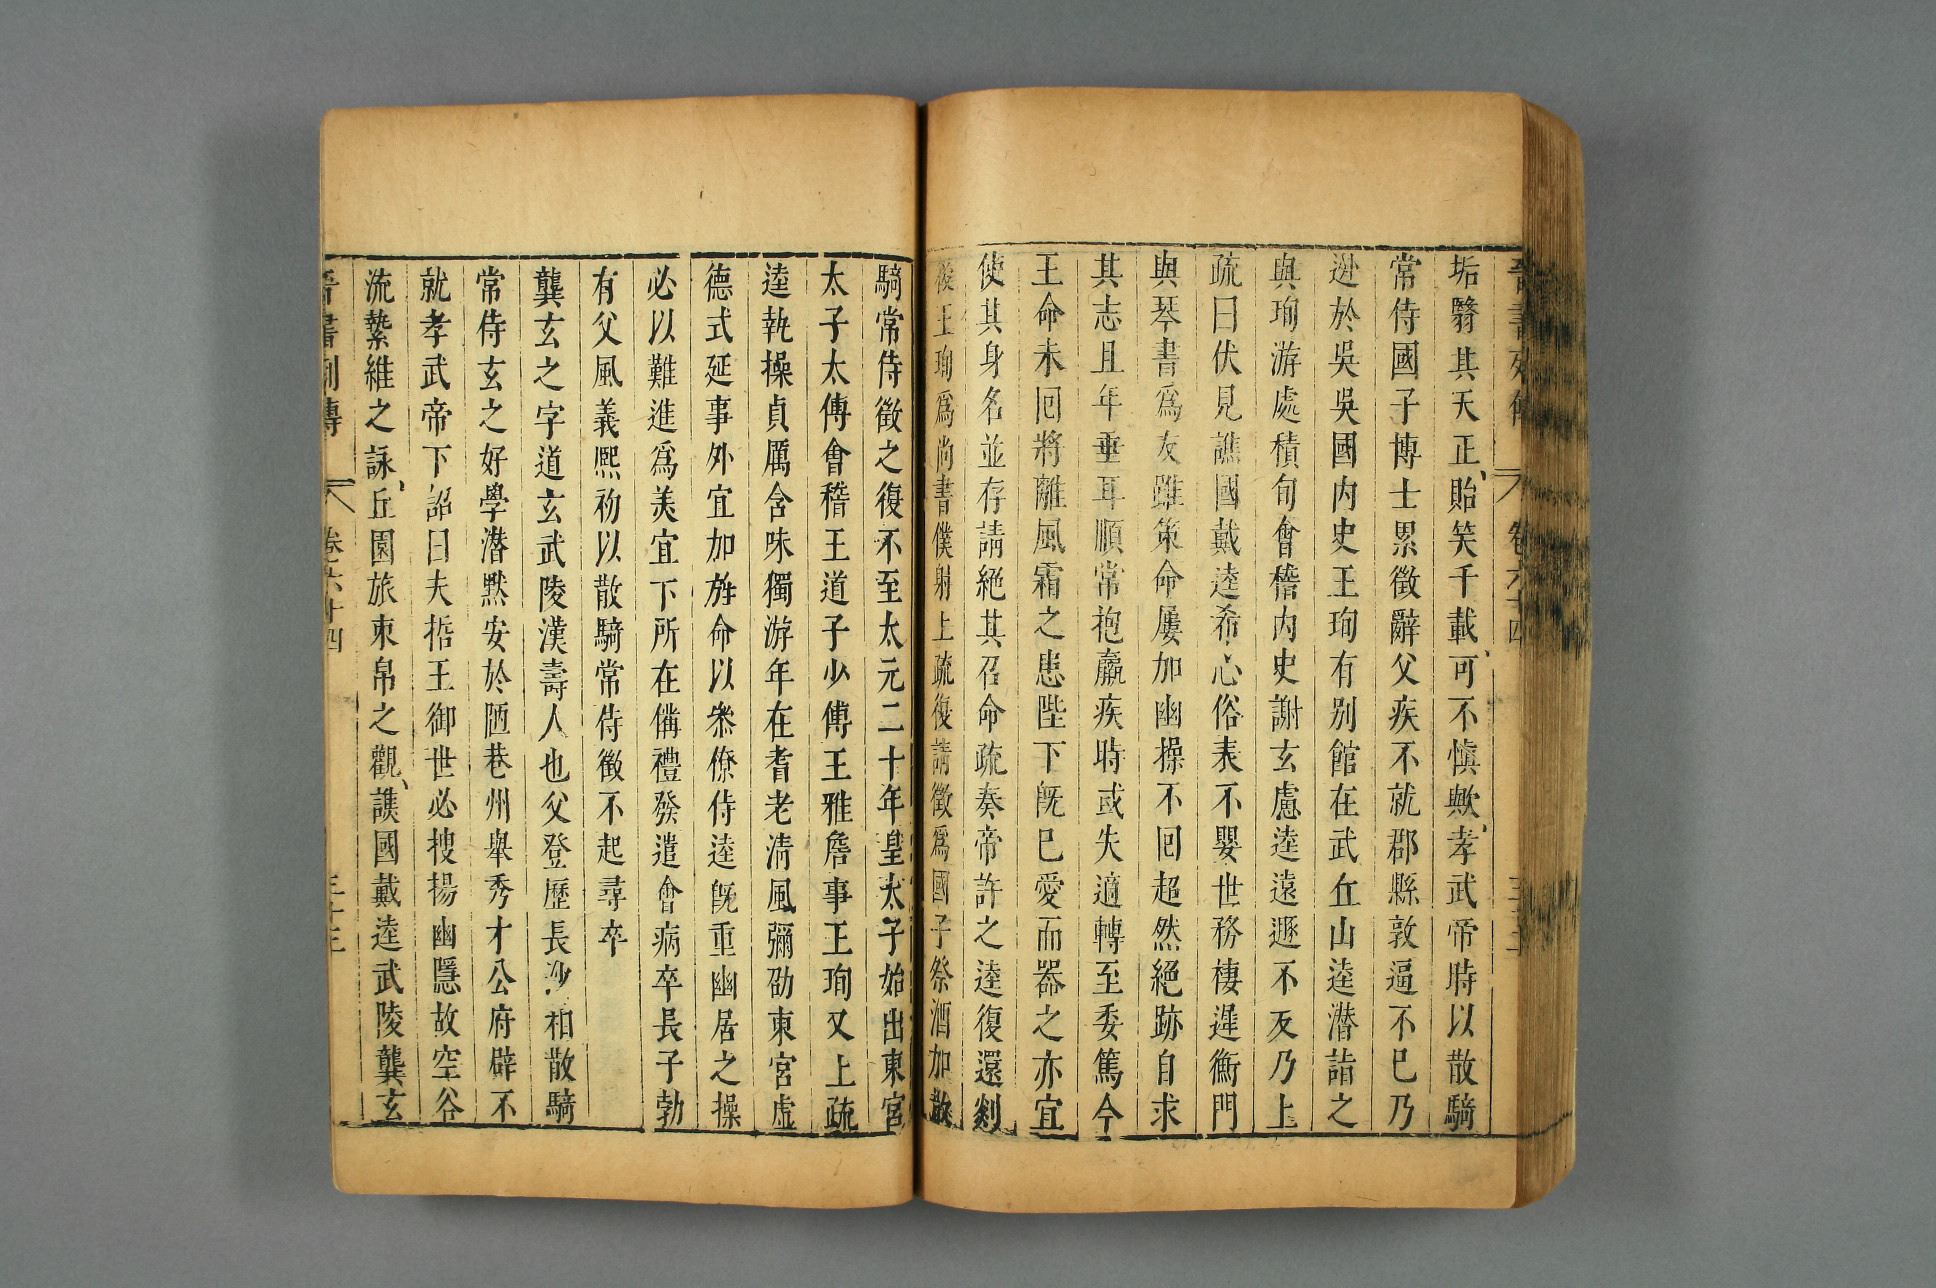 垢翳其天正貽笑千載可不慎歟孝武帝時以散騎
常侍國子博士累徵辭父疾不就郡縣敦逼不已乃
逃於吳吳國內史王珣有別館在武丘山逵潛詣之
與珣游處積旬會稽內史謝玄慮逵遠遯不反乃上
疏曰伏見譙國戴逵希心俗表不嬰世務棲遲衡門
與琴書爲友雖策命屢加幽操不回超然絕跡自求
其志且年垂耳順常抱羸疾時或失適轉至委篤今
王命未回將離風霜之患陛下旣已愛而器之亦宜
使其身名並存請絕其召命疏奏帝許之逵復還剡
後王珣爲尚書僕射上疏復請徵爲國子祭酒加散
騎常侍徵之復不至太元二十年皇太子始出東宮
太子太傅會稽王道子少傅王雅詹事王珣又上疏
逵執操貞厲含味獨游年在耆老清風彌劭東宮虛
德式延事外宜加旌命以叅僚侍逵旣重幽居之操
必以難進爲美宜下所在備禮發遣會病卒長子勃
有父風義熙初以散騎常侍徵不起尋卒
龔玄之字道玄武陵漢壽人也父登歷長沙相散騎
常侍玄之好學潛默安於陋巷州舉秀才公府辟不
就孝武帝下詔曰夫哲王御世必搜揚幽隱故空谷
流縶維之詠丘園旅束帛之觀譙國戴逵武陵龔玄
晉書列傳 卷六十四 三十三